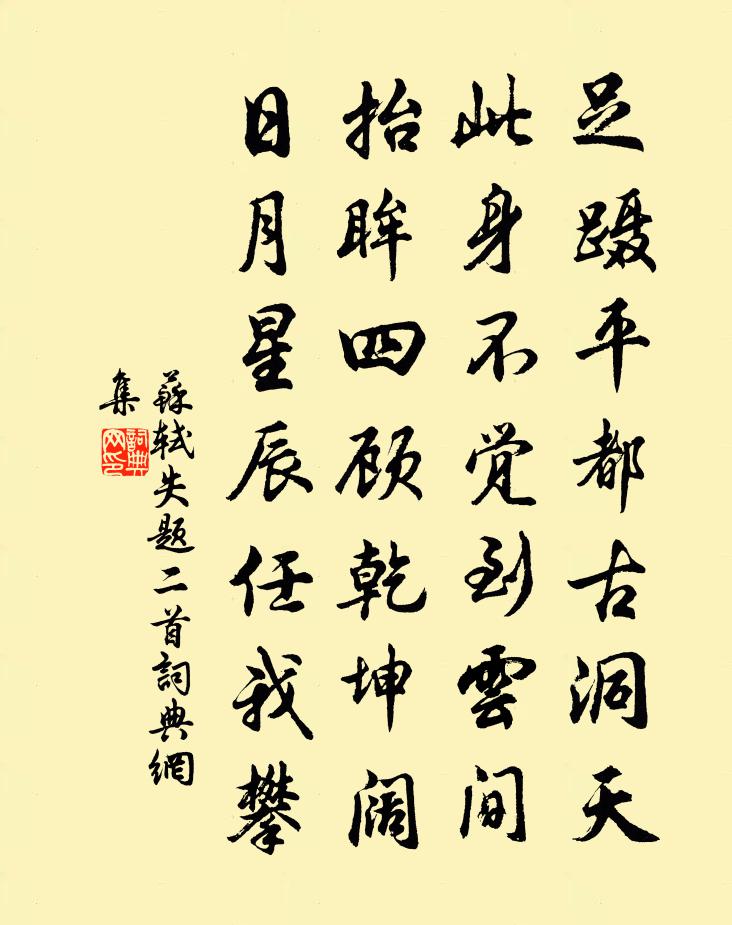 足蹑平都古洞天
此身不觉到雲间
抬眸四顾乾坤阔
日月星辰任我攀
蘇轼失题二首詞典網
集
詞典
网印